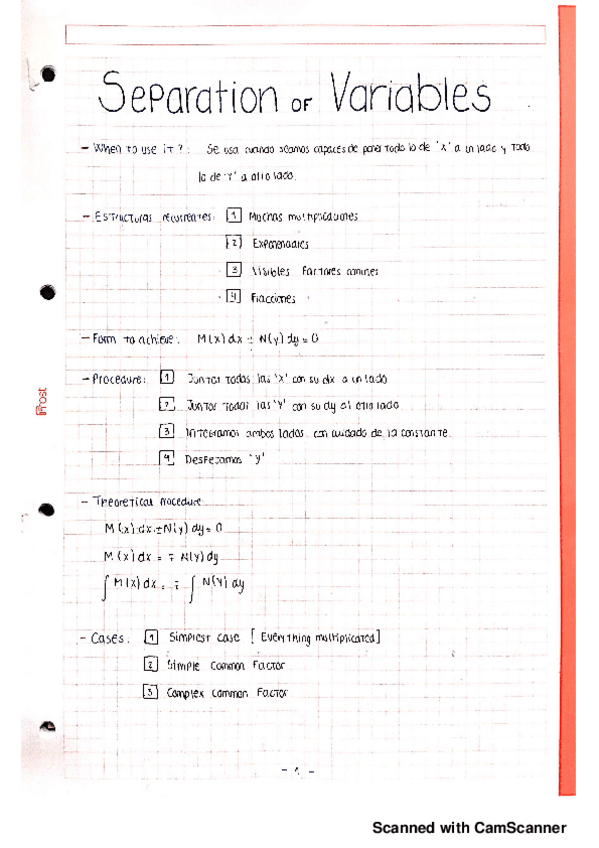 Separation of Variables
- When to use it?: Se usa cuando seamos capaces de poner todo lo de 'x' a un lado y todo
lo de 'Y' a otro lado.
- Estructuras recurrentes: 1 Muchas multiplicaciones
2 Exponenciales
3 Visibles factores comunes
4 Fracciones
- Form to achieve: M(x) dx ± N(y) dy = 0
- Procedure: 1 Juntar todas las 'x' con su dx a un lado
2 Juntar todas las 'Y' con su dy al otro lado
3 Integramos ambos lados con cuidado de la constante.
4 Despejamos 'y'
- Theoretical Procedure
M(x) dx ± N(y) dy = 0
M(x) dx = ∓ N(y) dy
∫ M(x) dx = ∓ ∫ N(y) dy
- Cases: 1 Simplest case [Everything multiplicated]
2 Simple Common Factor
3 Complex Common Factor
- 1 -
Prost
Scanned with CamScanner